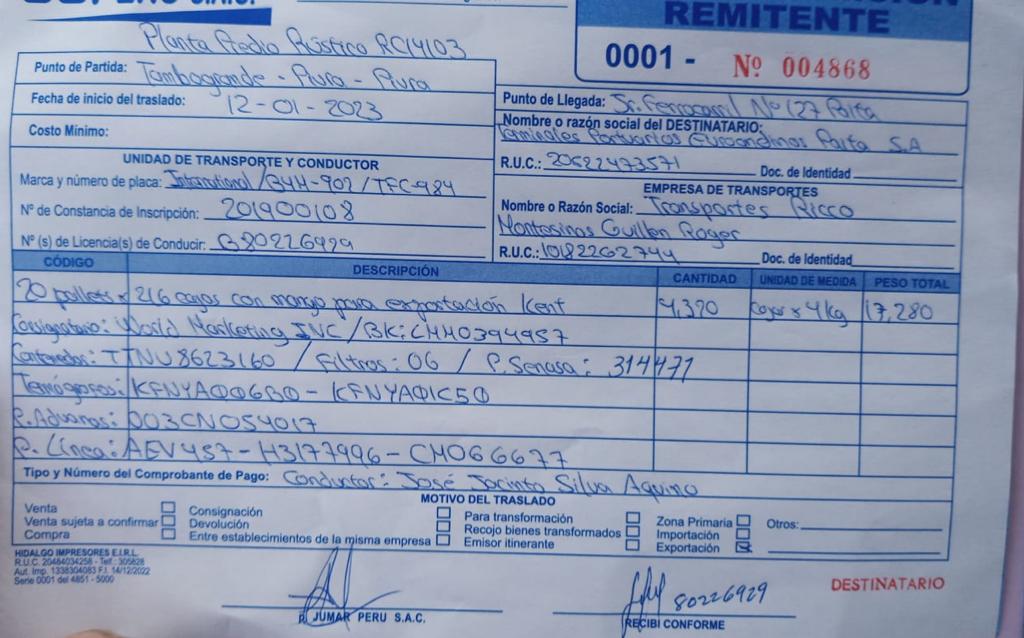 REMITENTE
0001 - Nº 004868
Planta Predio Rústico RC14103
Punto de Partida: Tambogrande - Piura - Piura
Fecha de inicio del traslado: 12-01-2023
Costo Mínimo:
Punto de Llegada: Jr. Ferrocarril Nº 127 Paita
Nombre o razón social del DESTINATARIO:
Terminales Portuarios Euroandinos Paita S.A
R.U.C.: 20522473571 Doc. de Identidad
UNIDAD DE TRANSPORTE Y CONDUCTOR
Marca y número de placa: International / B4H-902 / TFC-984
Nº de Constancia de Inscripción: 201900108
Nº (s) de Licencia(s) de Conducir: B80226929
EMPRESA DE TRANSPORTES
Nombre o Razón Social: Transportes Ricco
Montesinos Guillen Roger
R.U.C.: 10182262744 Doc. de Identidad
CÓDIGO DESCRIPCIÓN CANTIDAD UNIDAD DE MEDIDA PESO TOTAL
20 pallets x 216 cajas con mango para exportación Kent 4,320 cajas x 4kg 17,280
Consignatario: World Marketing INC / BK: CMM0394957
Contenedor: TTNU8623160 / Filtros: 06 / P. Senasa: 314471
Termógrafos: KFNYA006B0 - KFNYA01C50
P. Aduanas: 003CN054017
P. Línea: AEV457 - H3177996 - CM066677
Tipo y Número del Comprobante de Pago: Conductor: José Jacinto Silva Aquino
MOTIVO DEL TRASLADO
Venta
Venta sujeta a confirmar
Compra
Consignación
Devolución
Entre establecimientos de la misma empresa
Para transformación
Recojo bienes transformados
Emisor itinerante
Zona Primaria
Importación
Exportación
Otros:
HIDALGO IMPRESORES E.I.R.L.
R.U.C. 20484034256 - Telf.: 305828
Aut. Imp. 1338304083 F.I. 14/12/2022
Serie 0001 del 4851 - 5000
JUMAR PERU S.A.C.
80226929
RECIBI CONFORME
DESTINATARIO